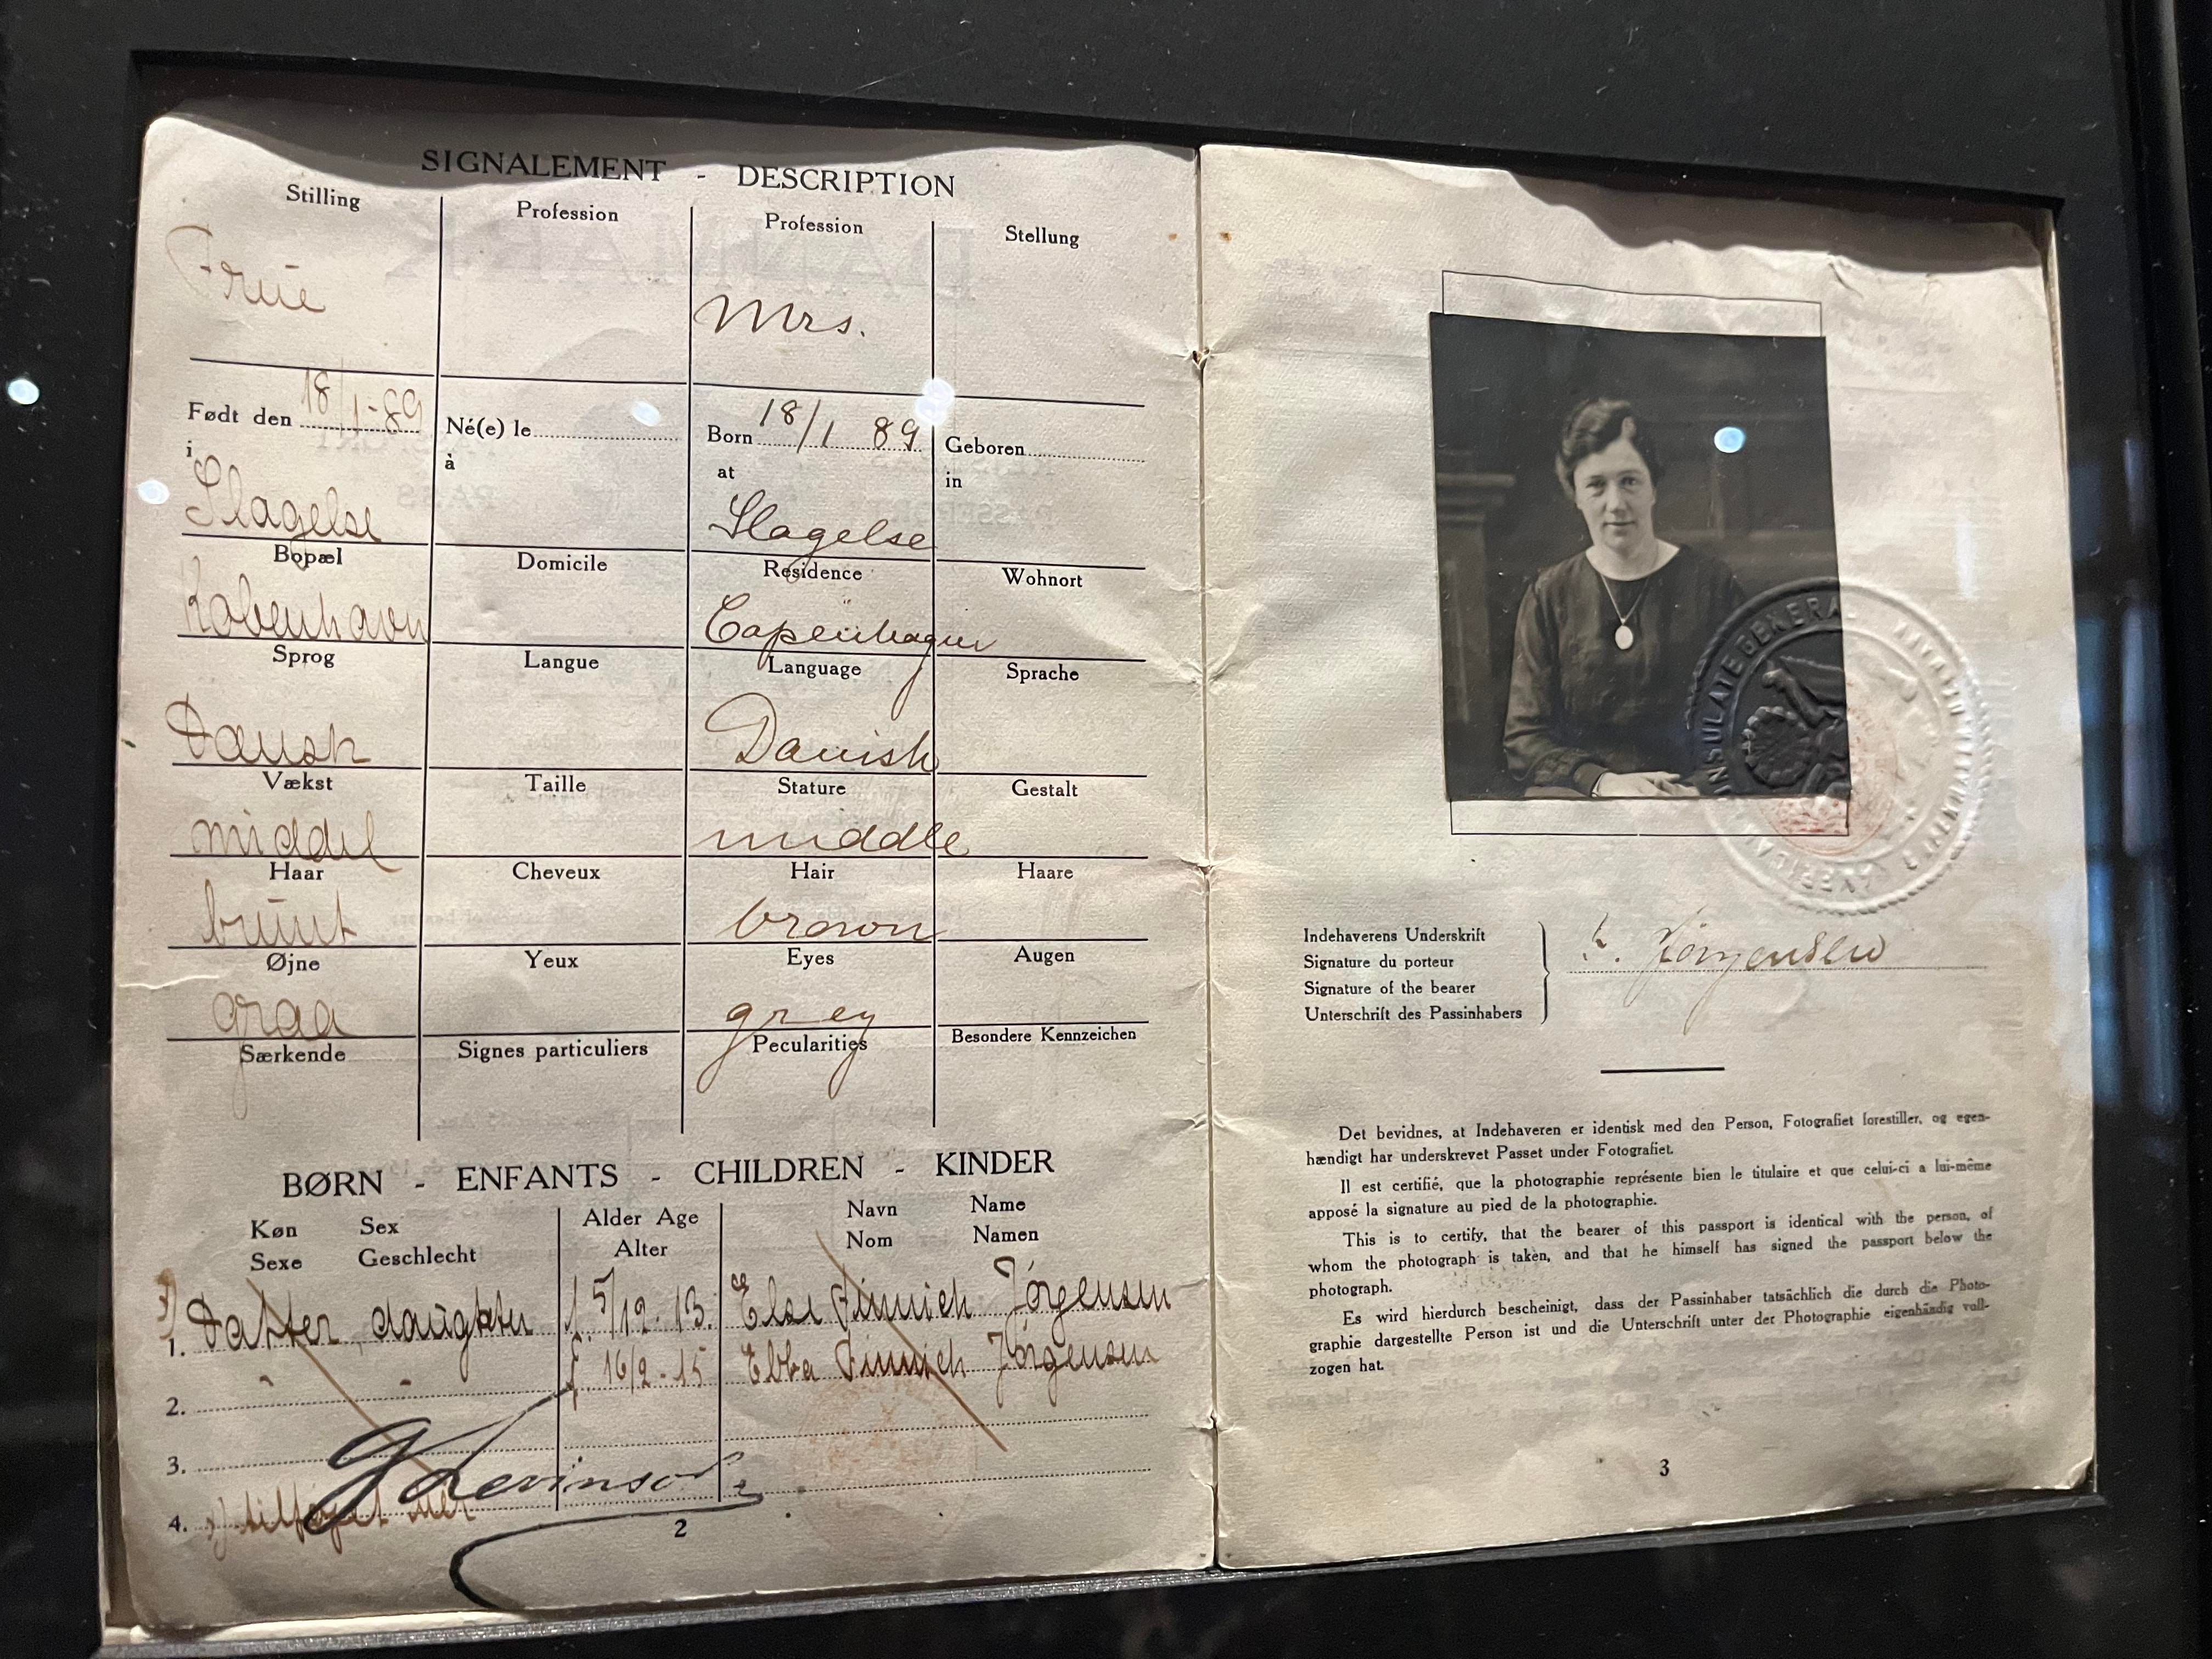 SIGNALEMENT - DESCRIPTION
Stilling Profession Profession Stellung
Frue Mrs.
Født den 18/1-89 Né(e) le Born 18/1 89 Geboren
i à at in
Slagelse Slagelse
Bopæl Domicile Residence Wohnort
København Copenhagen
Sprog Langue Language Sprache
Dansk Danish
Vækst Taille Stature Gestalt
middel middle
Haar Cheveux Hair Haare
brunt brown
Øjne Yeux Eyes Augen
graa grey
Særkende Signes particuliers Pecularities Besondere Kennzeichen
BØRN - ENFANTS - CHILDREN - KINDER
Køn Sex Alder Age Navn Name
Sexe Geschlecht Alter Nom Namen
1. Datter, daughter f. 5/12-13. Else Jørgensen
2. " " f. 16/2-15 Ebba Jørgensen
3.
4. tilføjet
2
CONSULATE GENERAL
Indehaverens Underskrift
Signature du porteur
Signature of the bearer
Unterschrift des Passinhabers
Jörgensen
Det bevidnes, at Indehaveren er identisk med den Person, Fotografiet forestiller, og egen-
hændigt har underskrevet Passet under Fotografiet.
Il est certifié, que la photographie représente bien le titulaire et que celui-ci a lui-même
apposé la signature au pied de la photographie.
This is to certify, that the bearer of this passport is identical with the person, of
whom the photograph is taken, and that he himself has signed the passport below the
photograph.
Es wird hierdurch bescheinigt, dass der Passinhaber tatsächlich die durch die Photo-
graphie dargestellte Person ist und die Unterschrift unter der Photographie eigenhändig voll-
zogen hat.
3